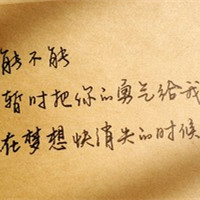 能不能
暂时把你的勇气给我
在梦想快消失的时候